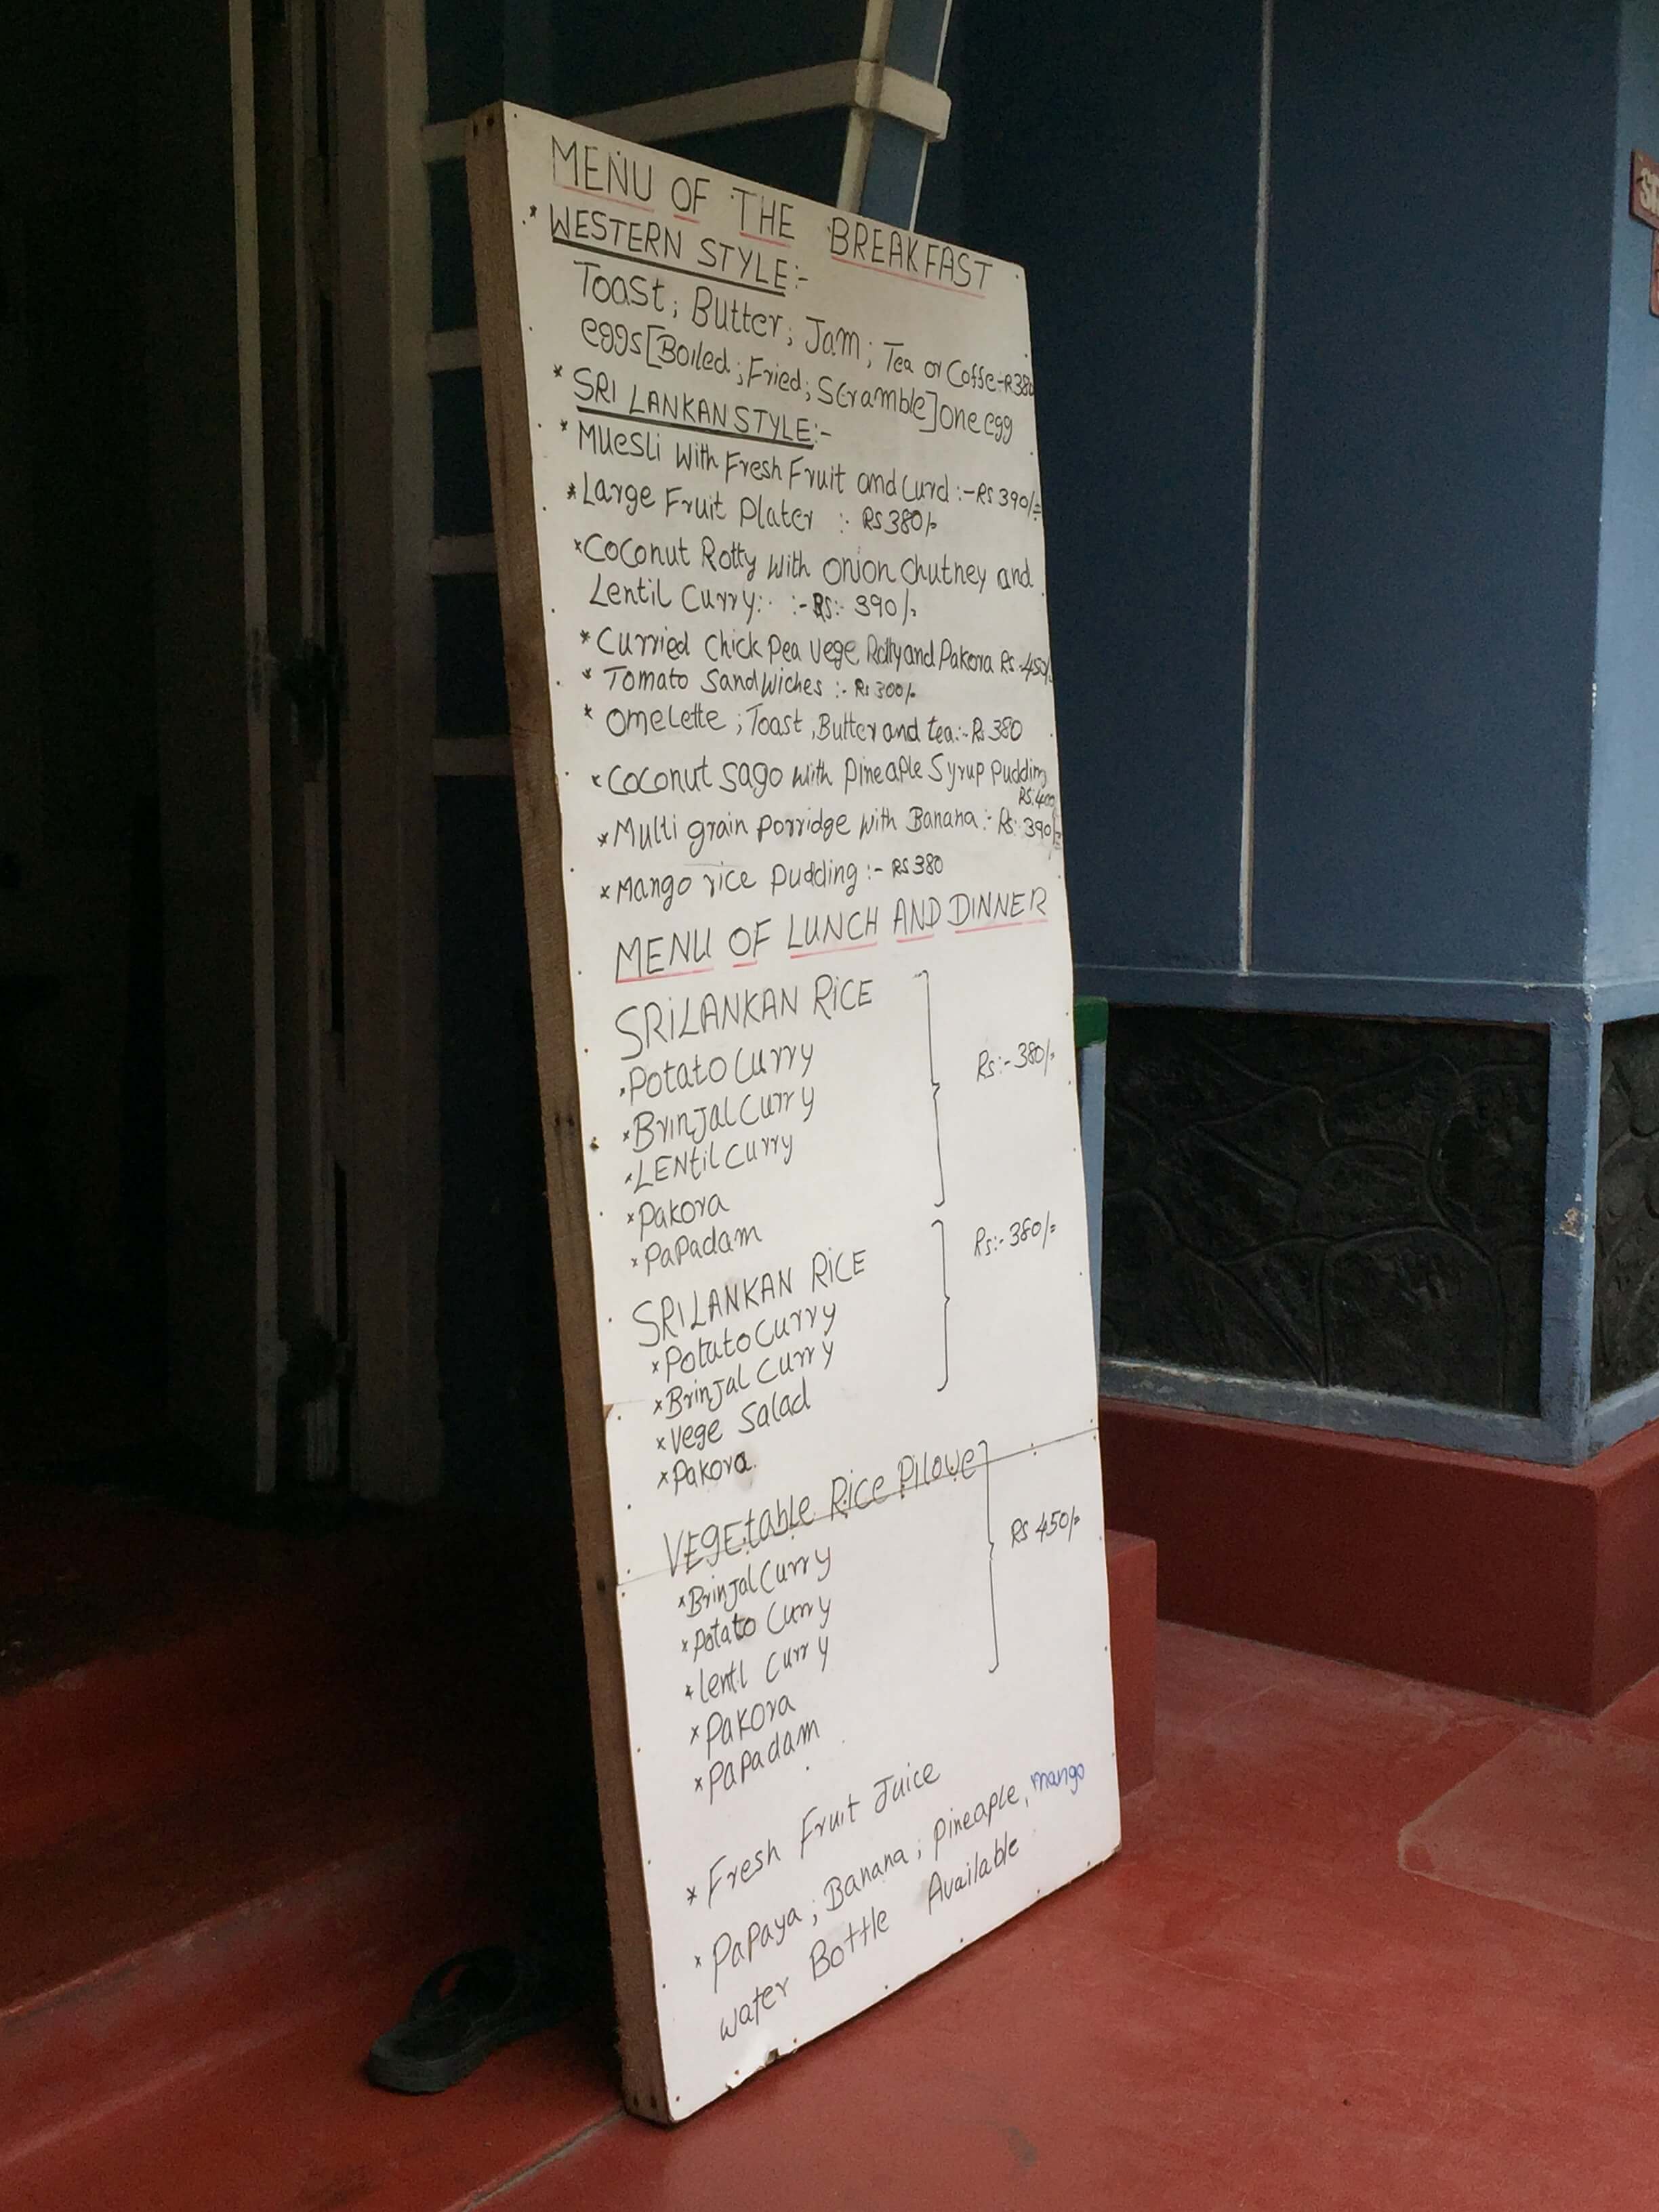 MENU OF THE BREAKFAST
* WESTERN STYLE:-
Toast; Butter; Jam; Tea or Coffe-R380
eggs [Boiled; Fried; Scramble] one egg
* SRI LANKAN STYLE:-
* Muesli with Fresh Fruit and Curd :- Rs 390/=
* Large Fruit Plater :- Rs 380/=
* Coconut Rotty with onion chutney and
Lentil Curry: :- Rs:- 390/=
* Curried Chick Pea Vege Rotty and Pakora Rs. 450/=
* Tomato Sandwiches :- Rs 300/=
* Omelette ; Toast, Butter and tea:- Rs 380
* Coconut Sago with Pineaple Syrup Pudding
Rs. 400
* Multi grain Porridge with Banana:- Rs: 390/=
* Mango rice Pudding :- Rs 380
MENU OF LUNCH AND DINNER
SRILANKAN RICE
* Potato Curry
Rs:- 380/=
* Brinjal Curry
* LENtil Curry
* Pakora
* Papadam
SRILANKAN RICE
Rs:- 380/=
* Potato Curry
* Brinjal Curry
* Vege Salad
* Pakora.
VEGEtable Rice Pilowe
Rs 450/=
* Brinjal Curry
* Potato Curry
* lentl Curry
* Pakora
* Papadam
* Fresh Fruit Juice
* Papaya; Banana; Pineaple, mango
water Bottle Available